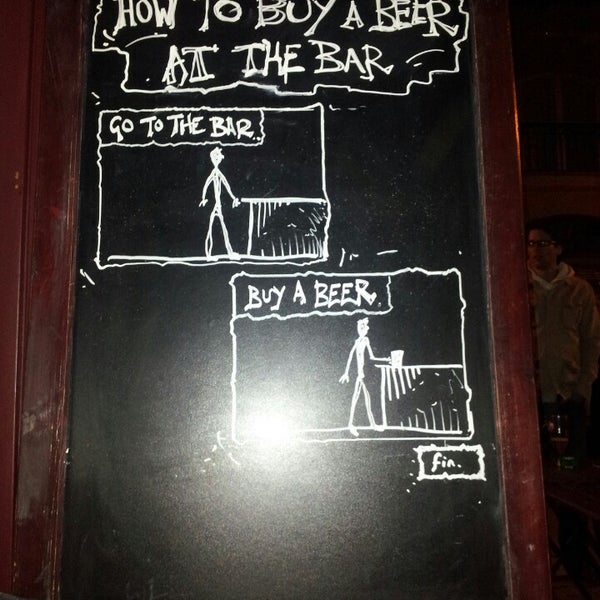 HOW TO BUY A BEER
AT THE BAR
GO TO THE BAR.
BUY A BEER.
fin.